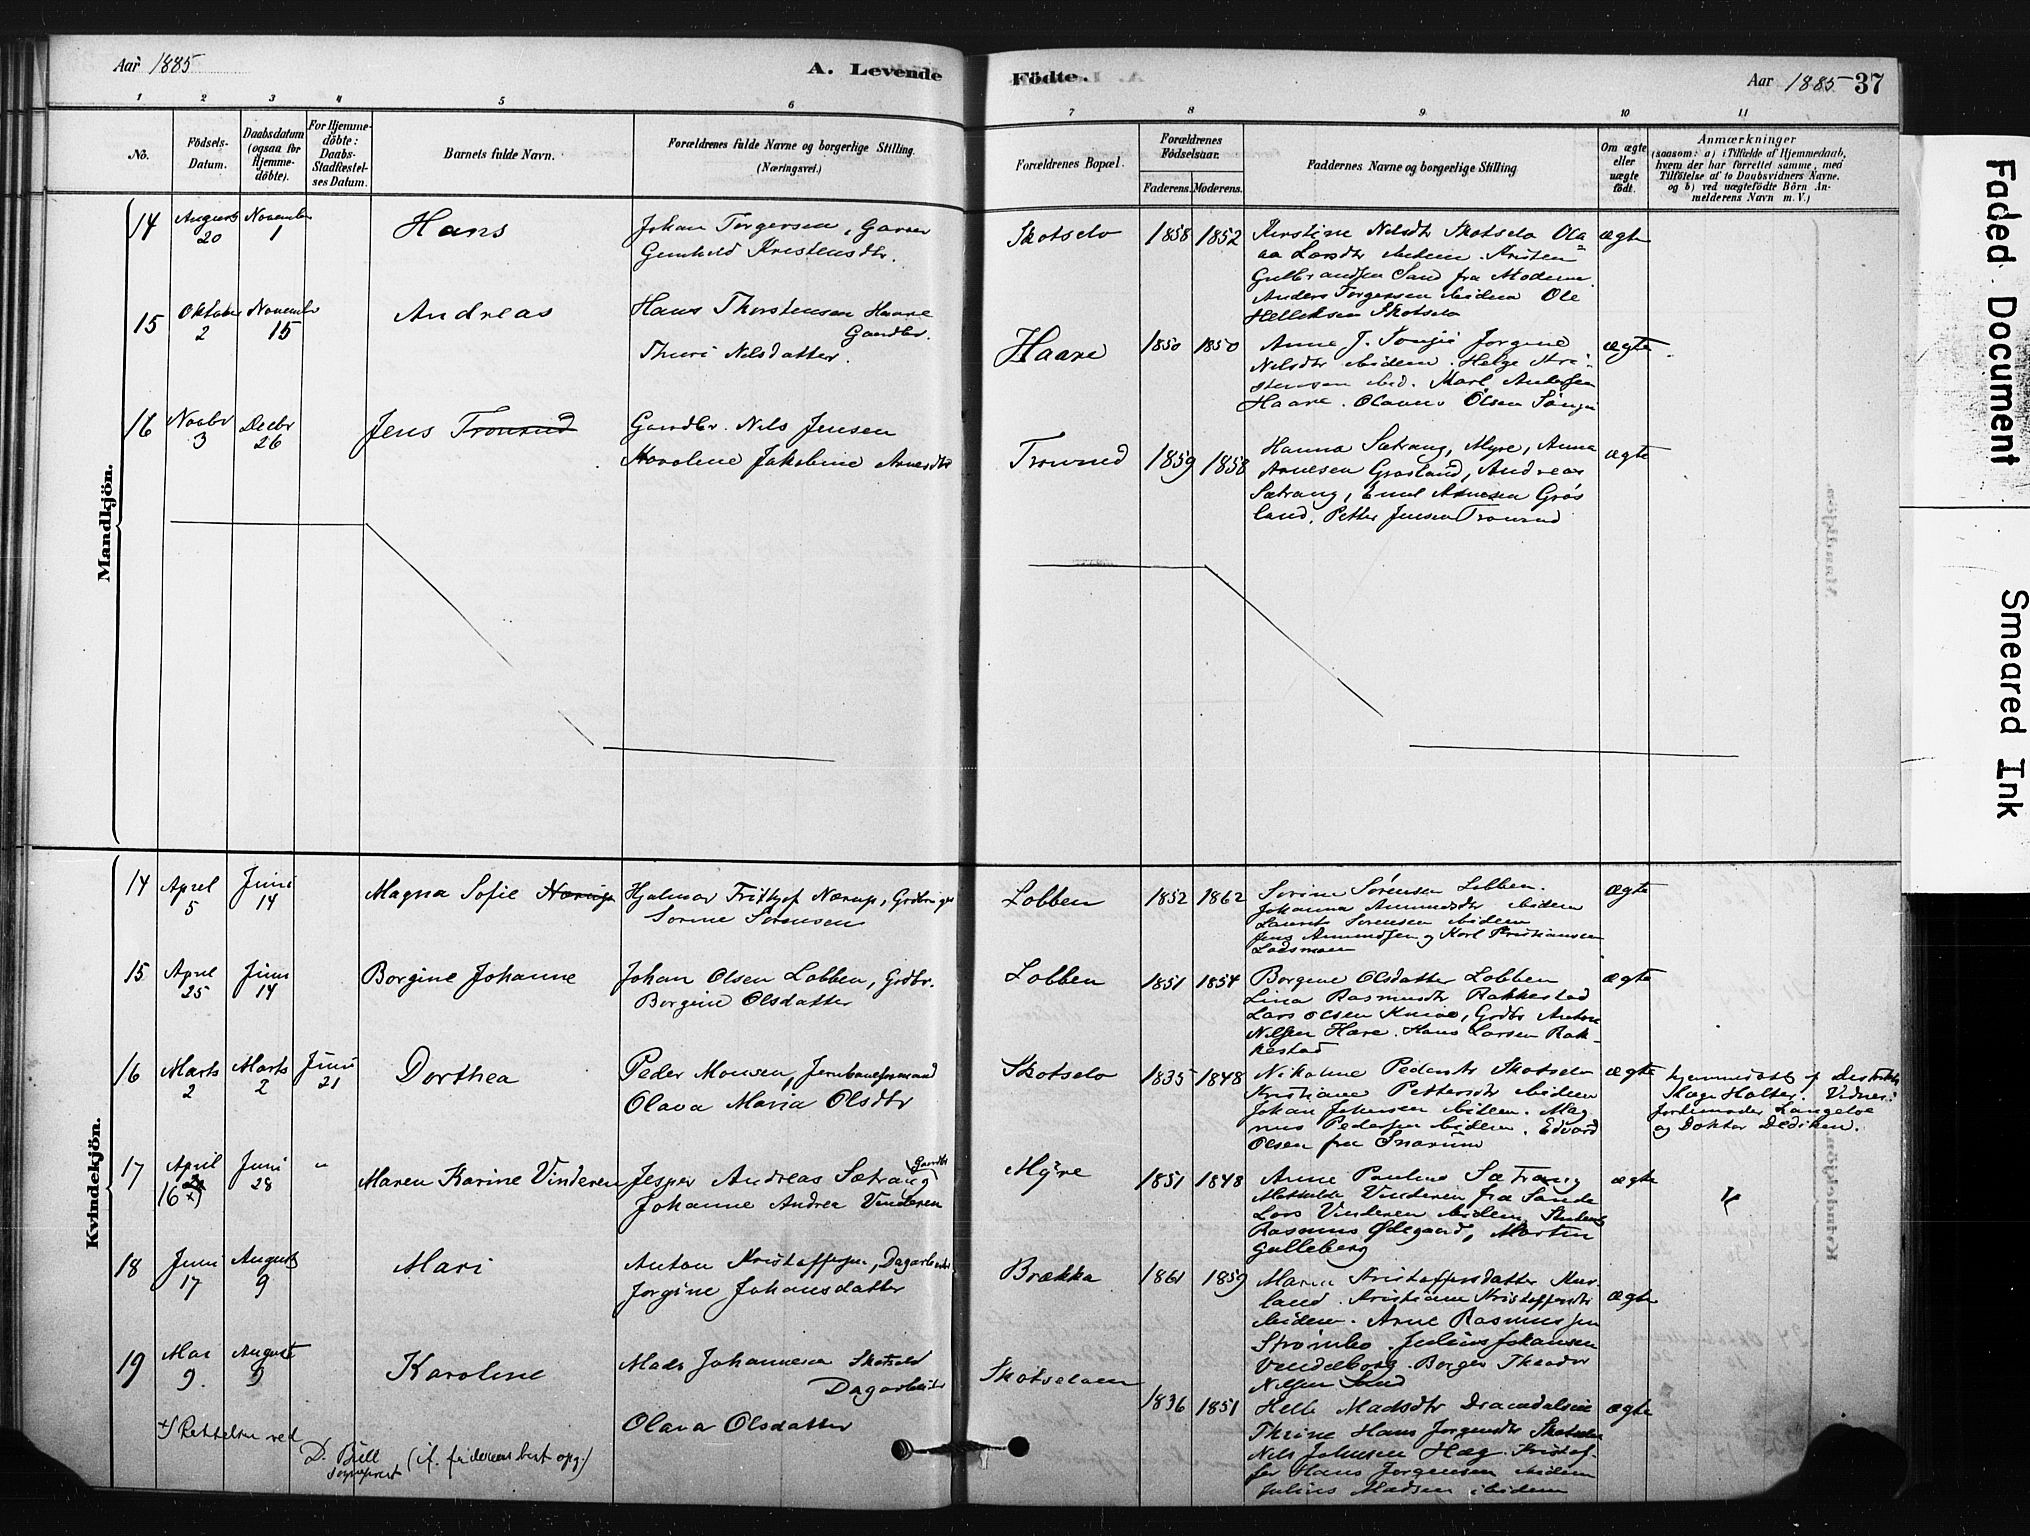 Aar 1885
A. Levende
Födte.
Aar 1885 37
1 2 3 4 5 6 7 8 9 10 11
No.
Födsels-Datum.
Daabsdatum (ogsaa for Hjemme-döbte).
For Hjemme-döbte: Daabs-Stadfæstel-ses Datum.
Barnets fulde Navn.
Forældrenes fulde Navne og borgerlige Stilling.
(Næringsvei.)
Forældrenes Bopæl.
Forældrenes Födselsaar.
Faderens. Moderens.
Faddernes Navne og borgerlige Stilling
Om ægte eller uægte födt.
Anmærkninger
(saasom: a) i Tilfælde af Hjemmedaab,
hvem der har forrettet samme, med
Tilföielse af to Daabsvidners Navne.
og b) ved uægtefödte Börn An-
melderens Navn m. V.)
Mandkjön.
14 August 20 November 1 Hans
Johan Torgersen, Garver
Gunhild Kristensdtr.
Skotselv 1858 1852
Kirstine Nilsdtr Skotselv Ola
aa Larsdtr ibidem Kristen
Gulbrandsen Sand fra Modum
Anders Torgersen ibidem Ole
Helleksen Skotselv
ægte
15 Oktober 2 November 15 Andreas
Hans Thorstensen Haare
Gaardbr.
Thuri Nilsdatter.
Haare 1850 1850
Anne J. Jorgine
Nilsdtr ibidem. Helge Kri-
stensen ibid. Karl Andersen
Haare. Olaus Olsen
ægte
16 Novbr 3 Decbr 26 Jens Tronrud
Gaardbr. Nils Jensen
Karoline Jakobine Arnesdtr
Tronrud 1859 1858
Hanna Sætrang, Myre, Anna
Arnesen Grosland, Andreas
Sætrang, Emil Arnesen Grøs
land, Petter Jensen Tronrud
ægte
Kvindekjön.
14 April 5 Juni 14 Magna Sofie Nærup
Hjalmar Frithjof Nærup,
Sorine Sørensen
Lobben 1852 1862
Sorine Sørensen Lobben.
Johanna Ammundsdtr ibidem
Laurits Sorensen ibidem
Jens Ammundsen og Karl Kristiansen
Lodsmoen
ægte
15 April 25 Juni 14 Borgine Johanne
Johan Olsen Lobben, Grdbr.
Borgine Olsdatter
Lobben 1851 1854
Borgine Olsdatter Lobben
Lina Rasmusdtr Rakkestad
Lars Olsen Knive, Grdbr Anton
Nilsen Hære. Hans Larsen Rak-
kestad
ægte
16 Marts 2 Marts 2 Juni 21 Dorthea
Peder Monsen, Jernbaneformand
Olava Maria Olsdtr
Skotselv 1835 1848
Nikoline Pedersdtr Skotselv
Kristiane Pettersdtr ibidem
Johan Johnsen ibidem. Mag
nus Pedersen ibidem. Edvard
Olsen fra Snarum
ægte
hjemmedøbt af Distrikts
læge Holter. Vidner:
Jordemoder Langeloe
og Doktor Dedichen.
17 April 16 x) Juni 28 " Maren Karine Vinderen
Jesper Andreas Sætrang Gaardbr
Johanne Andrea Vinderen
Myre 1851 1848
Anne Pauline Sætrang
Mathilde Vinderen fra Sande
Lars Vinderen ibidem Student
Rasmus Ødegaard, Martin
Gulleberg
ægte
18 Juni 17 August 9 Mari
Anton Kristoffersen, Dagarbeider
Jorgine Johansdatter
Brækka 1861 1859
Maren Kristoffersdatter
land. Kristiane Kristoffersdtr
ibidem. Arne Rasmussen
Strømbo. Julius Johansen
Vendelborg. Borger Theodor
Nilsen Sand
ægte
19 Mai 9. August 9 Karoline
Mads Johannesen Skotselv
Dagarbeider
Olava Olsdatter
Skotselven 1836 1851
Helle Madsdtr Dramdalseie
Thrine Hans Jorgensdtr Skotselv
Nils Johnsen Hæg. Kristof-
fer Hans Jorgensen ibidem
Julius Madsen ibidem
ægte
x) Rettelse ved
D. Büll
Sogneprest
(if. faderens best. opg.)
Faded Document
Smeared Ink